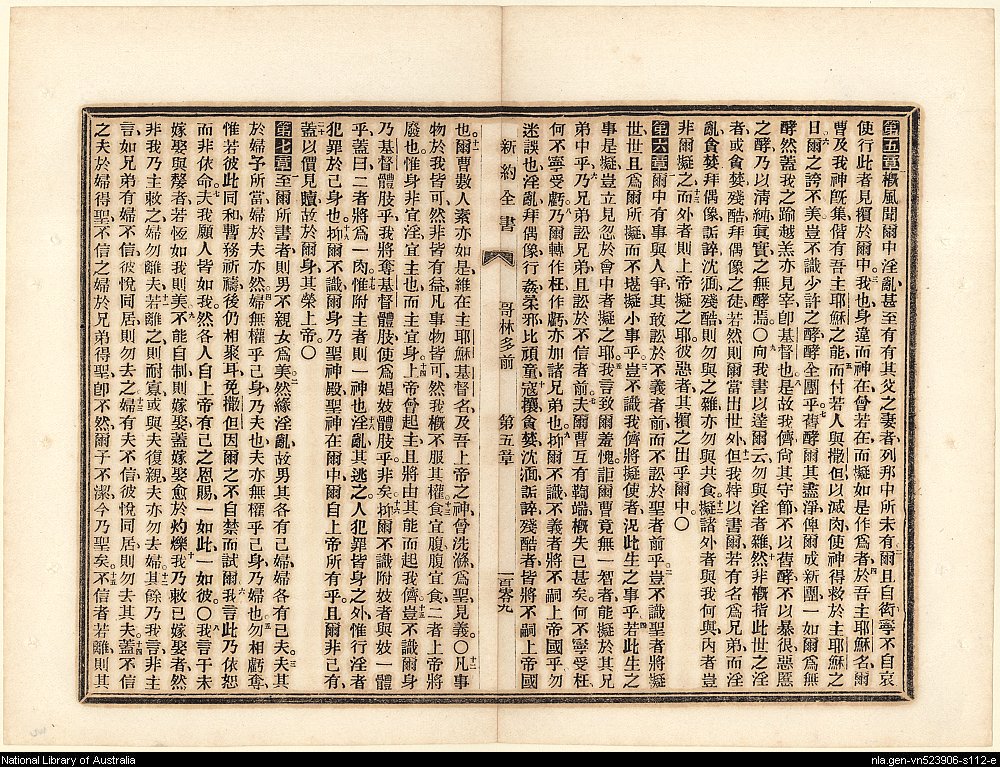 第五章概風聞爾中淫亂甚至有有其父之妻者列邦中所未有爾且自衒寧不自哀
使行此者見擯於爾中我也身違而神在曾若在而擬如是作爲者於吾主耶穌名爾
曹及我神旣集偕有吾主耶穌之能而付若人與撒但以滅肉使神得救於主耶穌之
日爾之誇不美豈不識少許之酵酵全團乎舊酵爾其盡淨俾爾成新團一如爾爲無
酵然蓋我之踰越羔亦見宰卽基督也是故我儕尙其守節不以舊酵不以暴很惡慝
之酵乃以淸純眞實之無酵焉〇向我書以達爾云勿與淫者雜然非槪指此世之淫
者或貪婪殘酷拜偶像之徒若然則爾當出世外但我特以書爾若有名爲兄弟而淫
亂貪婪拜偶像詬誶沈湎殘酷則勿與之雜亦勿與共食擬諸外者與我何與內者豈
非爾擬之而外者則上帝擬之耶彼惡者其擯之出乎爾中〇
第六章爾中有事與人爭其敢訟於不義者前而不訟於聖者前乎豈不識聖者將擬
世世且爲爾所擬而不堪擬小事乎豈不識我儕將擬使者況此生之事乎若此生之
事是擬豈立見忽於會中者擬之耶我言致爾羞愧詎爾曹竟無一智者能擬於其兄
弟中乎乃兄弟訟兄弟且訟於不信者前夫爾曹互有鞫端槪失已甚矣何不寧受枉
何不寧受虧乃爾轉作枉作虧亦加諸兄弟也抑爾不識不義者將不嗣上帝國乎勿
迷誤也淫亂拜偶像行姦柔邪比頑童寇攘貪婪沈湎詬誶殘酷者皆將不嗣上帝國
新約全書 哥林多前 第五章 一百零九
也爾曹數人素亦如是維在主耶穌基督名及吾上帝之神曾洗滌爲聖見義〇凡事
物於我皆可然非皆有益凡事物皆可然我槪不服其權食宜腹腹宜食二者上帝將
廢也惟身非宜淫宜主也而主宜身上帝曾起主且將由其能而起我儕豈不識爾身
乃基督體肢乎我將奪基督體肢使爲娼妓體肢乎非矣抑爾不識附妓者與妓一體
乎蓋曰二者將爲一肉惟附主者則一神也淫亂其逃之人犯罪皆身之外惟行淫者
犯罪於己身也抑爾不識爾身乃聖神殿聖神在爾中爾自上帝所有乎且爾非己有
蓋以價見贖故於爾身其榮上帝〇
第七章至爾所書者則男不親女爲美然緣淫亂故男其各有己婦婦各有己夫夫其
於婦予所當婦於夫亦然婦無權乎己身乃夫也夫亦無權乎己身乃婦也勿相虧奪
惟若彼此同和暫務祈禱後仍相聚耳免撒但因爾之不自禁而試爾我言此乃依恕
而非依命夫我願人皆如我然各人自上帝有己之恩賜一如此一如彼〇我言于未
嫁娶與嫠者若恆如我則美不能自制則嫁娶蓋嫁娶愈於灼爍我乃敕已嫁娶者然
非我乃主敕之婦勿離夫若離之則耐寡或與夫復親夫亦勿去婦其餘乃我言非主
言如兄弟有婦不信彼悅同居則勿去之婦有夫不信彼悅同居則勿去其夫蓋不信
之夫於婦得聖不信之婦於兄弟得聖卽不然爾子不潔今乃聖矣不信者若離則其
National Library of Australia
nla.gen-vn523906-s112-e